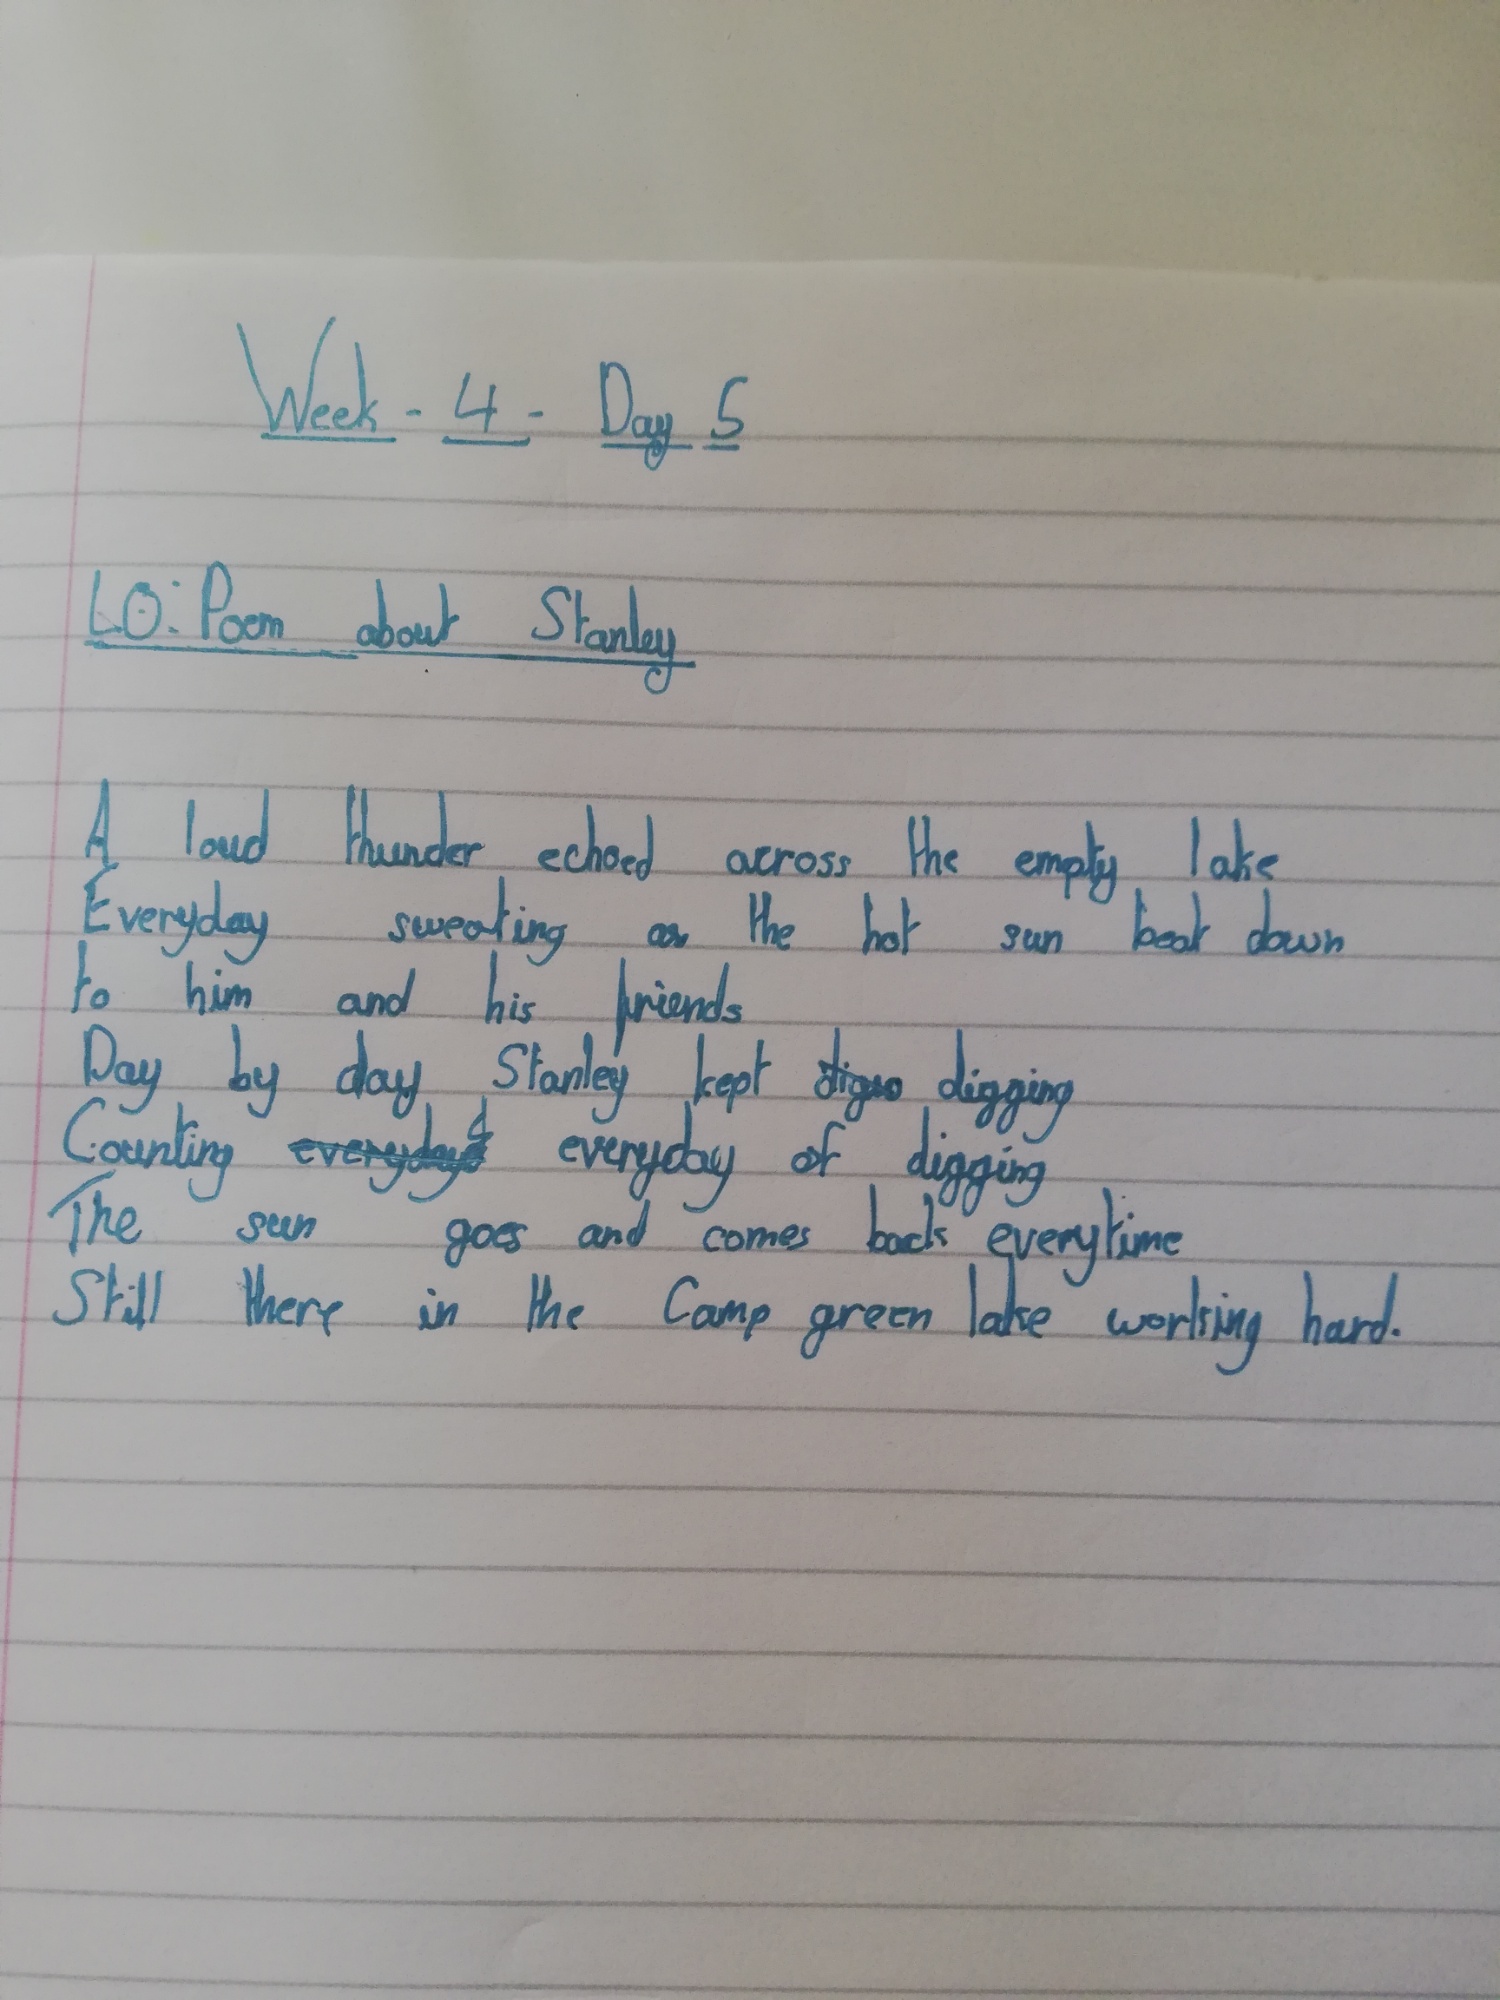 Week - 4 - Day 5
LO: Poem about Stanley
A loud thunder echoed across the empty lake
Everyday sweating as the hot sun beat down
to him and his friends
Day by day Stanley kept digging
Counting everyday of digging
The sun goes and comes back everytime
Still there in the Camp green lake working hard.